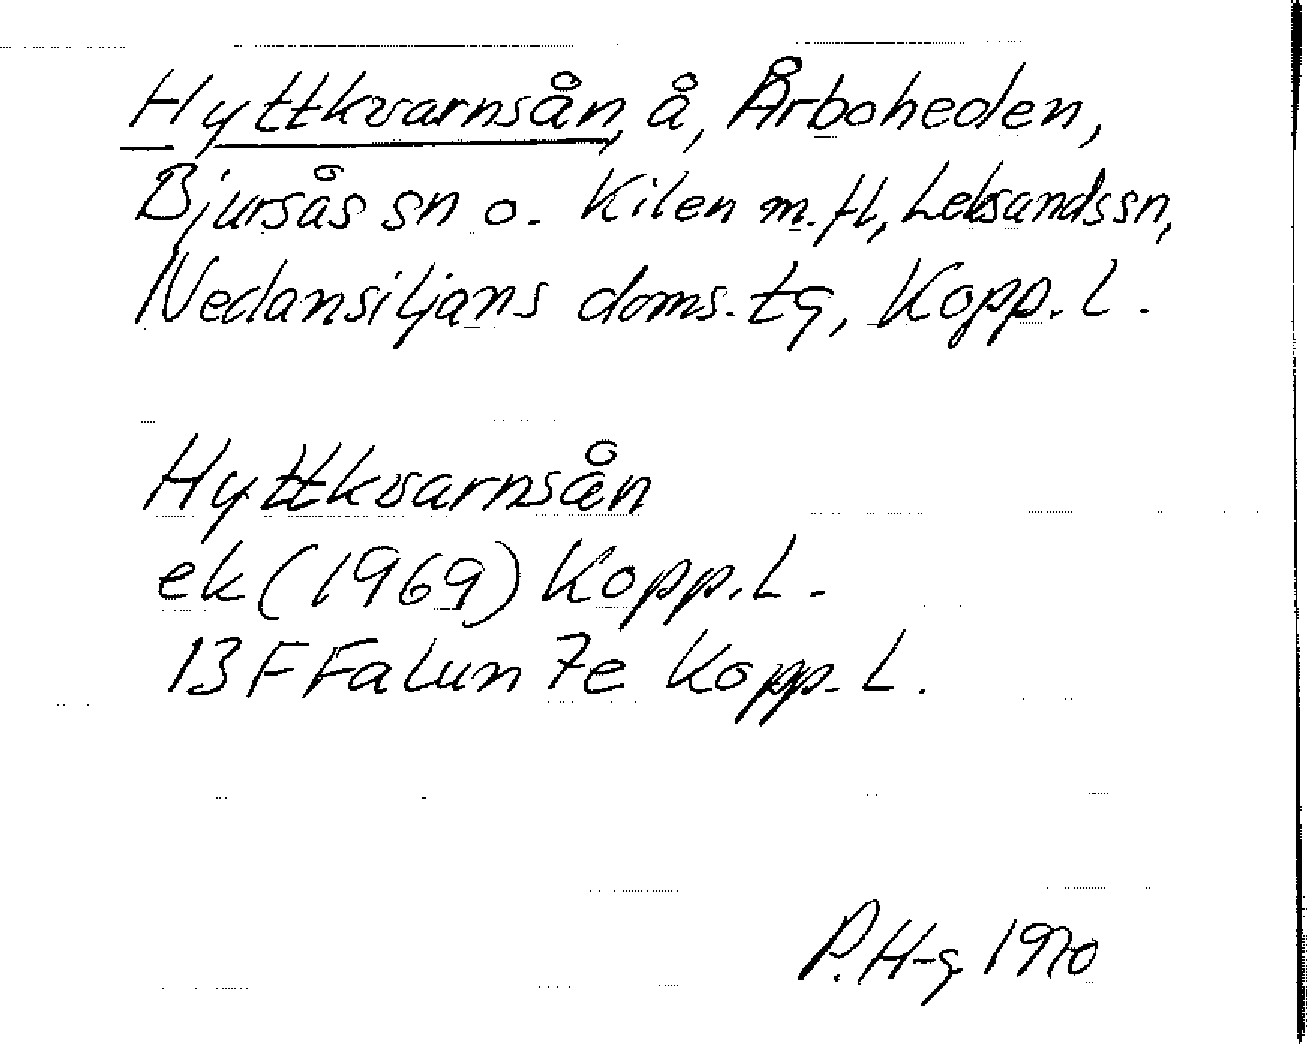 Hyttkvarnsån, å, Årboheden,
Bjursås sn o. Kilen m.fl, Leksands sn,
Nedansiljans doms.tg, Kopp. L.
Hyttkvarnsån
ek (1969) Kopp. L.
13F Falun 7e Kopp. L.
P. H-g 1970